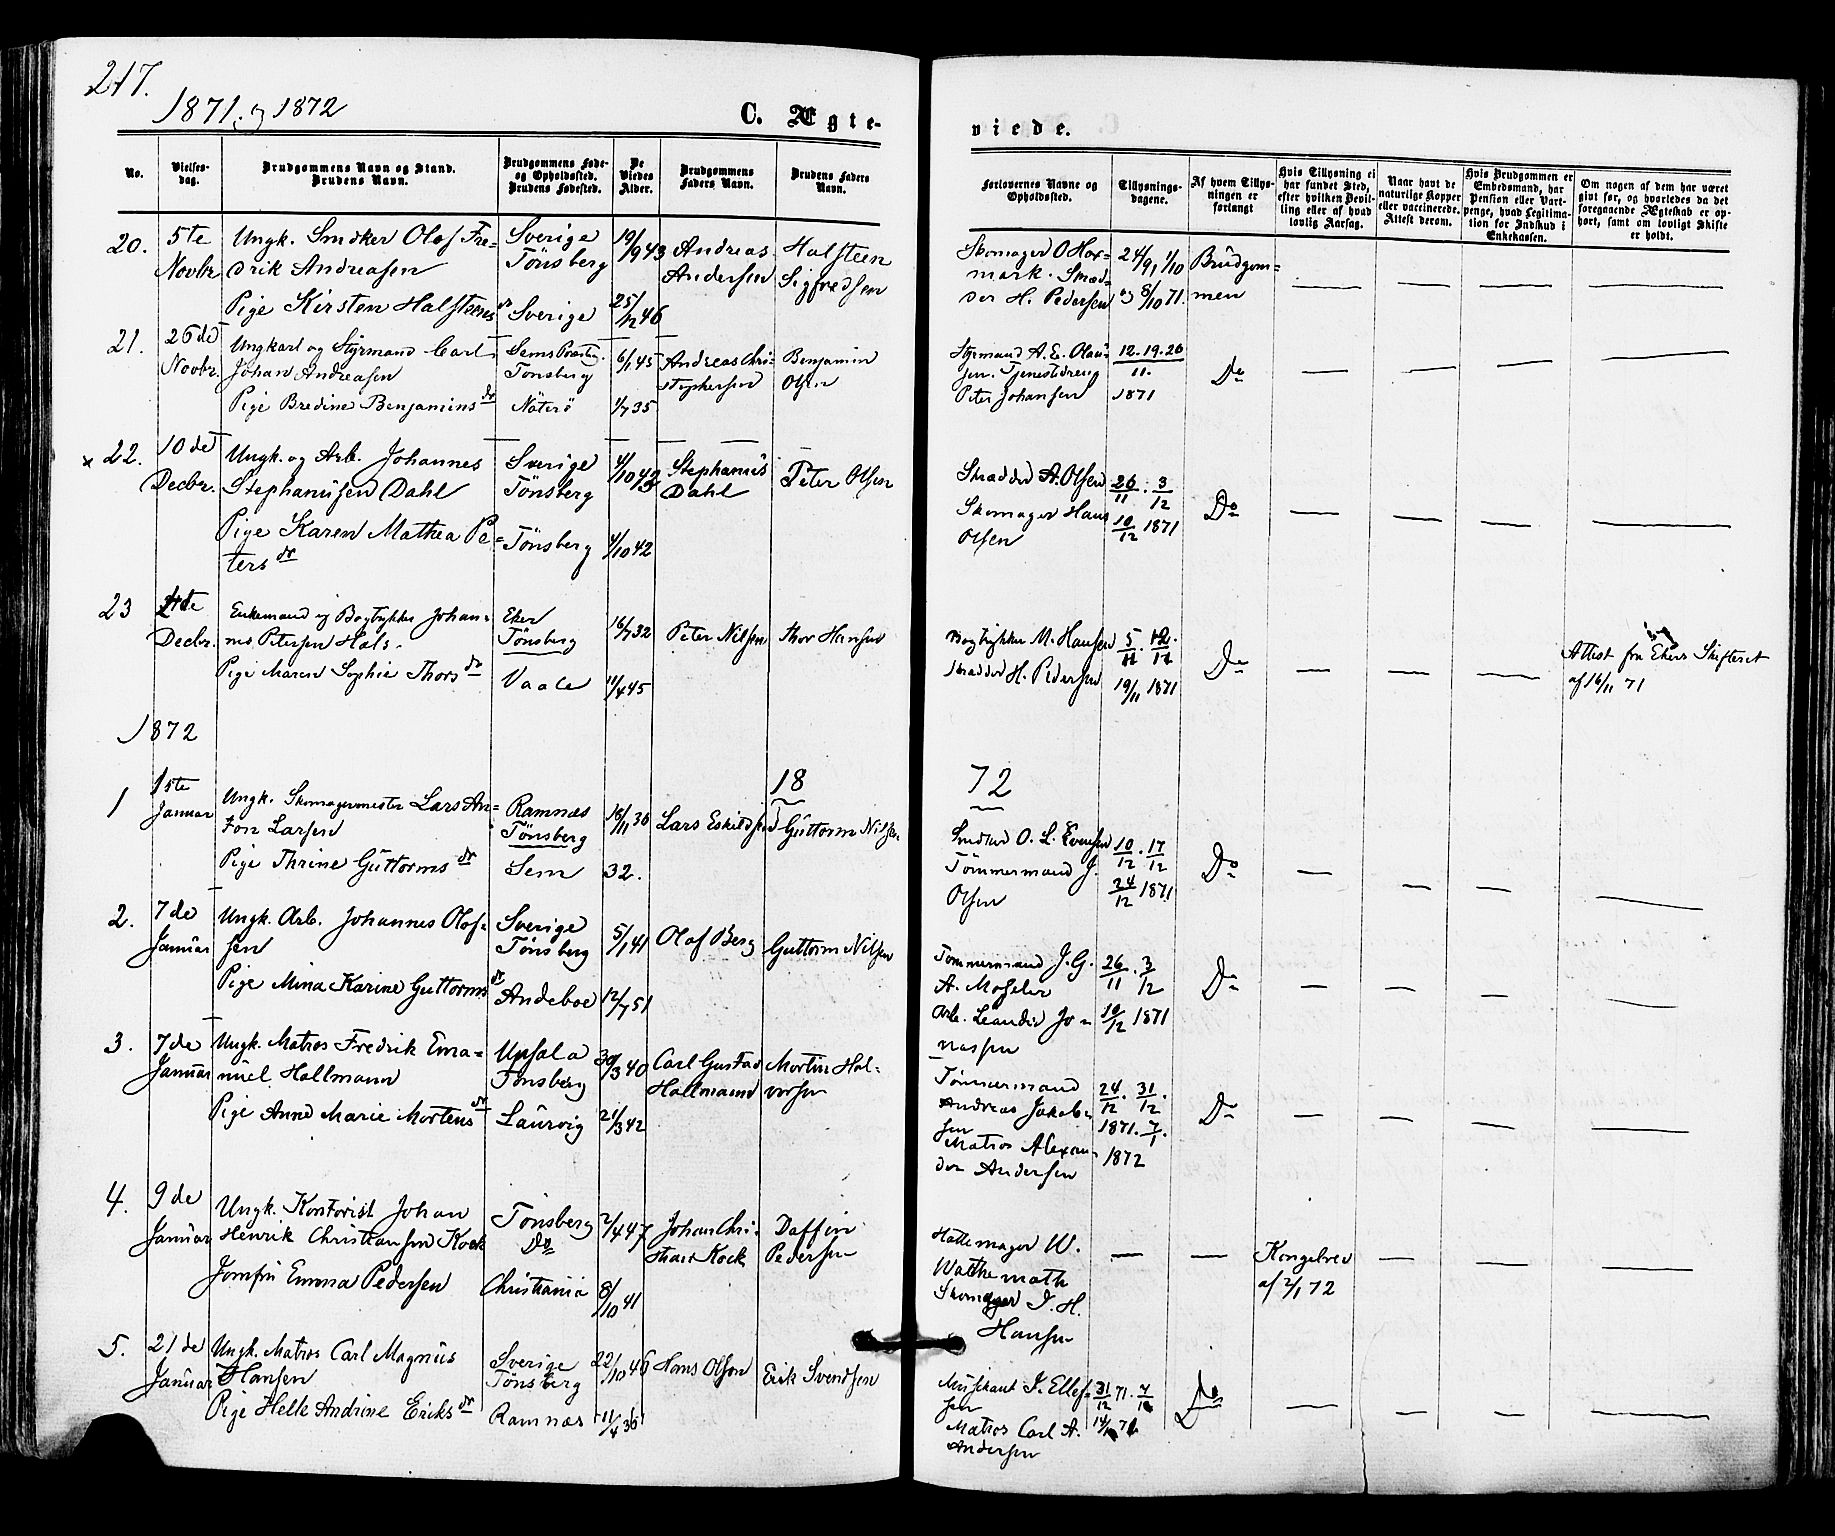 217.
1871. og 1872
C. Ægte-
viede.
No.
Vielses-
dag.
Brudgommens Navn og Stand.
Brudens Navn.
Brudgommens Føde-
og Opholdssted.
Brudens Fødested.
De
Viedes
Alder.
Brudgommens
Faders Navn.
Brudens Faders
Navn.
Forlovernes Navne og
Opholdssted.
Tillysnings-
dagene.
Af hvem Tillys-
ningen er
forlangt
Hvis Tillysning ei
har fundet Sted,
efter hvilken Bevil-
ling eller af hvad
lovlig Aarsag.
Naar havt de
naturlige Kopper
eller vaccinerede.
Attest derom.
Hvis Brudgommen er
Embedsmand, har
Pension eller Vart-
penge, hvad Legitima-
tion for Indskud i
Enkekassen.
Om nogen af dem har været
givt før, og hvorledes da det
foregaaende Ægteskab er op-
hørt, samt om lovligt Skifte
er holdt.
20. 5te Novbr.
Ungk. Snedker Olof Fre-
drik Andreasen
Pige Kirsten Halsteens dr
Sverige
Tönsberg
Sverige
19/9 43
25/12 46
Andreas
Andersen
Halsteen
Sigfredsen
Skomager O Hox-
mark. Skræd-
der H. Pedersen
24/9, 1/10
og 8/10 71.
Brudgom-
men
21. 26de Novbr.
Ungkarl og Styrmand Carl
Johan Andreasen
Pige Bredine Benjamins dr
Sems Præstg.
Tonsberg
Nöterö
6/1 45
1/7 35
Andreas Chri-
stophersen
Benjamin
Olsen
Styrmand A. E. Olau-
sen. Tjenestdreng
Peter Johansen
12. 19. 26
11.
1871
Do
x 22. 10de Decbr.
Ungk. og Arb. Johannes
Stephanusen Dahl
Pige Karen Mathea Pe-
ters dr
Sverige
Tönsberg
Tönsberg
4/10 43
4/10 42
Stephanus
Dahl
Peter Olsen
Skrædder A. Olsen
Skomager Hans
Olsen
26/11. 3/12
10/12 1871
Do
23 Decbr.
Enkemand og Bogtrykker Johan-
nes Petersen Hals.
Pige Maren Sophie Thors dr
Eker
Tönsberg
Vaale
16/7 32
11/4 45
Peter Nilsen
Thor Hansen
Bogtrykker M. Hansen
Skrædder H. Pedersen
5/11. 12/11
19/11 1871
Do
Attest fra Ekers Skifteret
af 16/11 71
1872
18 72
1 1ste Januar
Ungk. Skomagermester Lars An-
ton Larsen
Pige Thrine Guttorms dr
Ramnæs
Tönsberg
Sem
18/11 36
32.
Lars Eskildsen
Guttorm Nilsen
Snedker O. L. Evensen
Tömmermand J.
Olsen
10/12. 17/12
24/12 1871
Do
2. 7de Januar
Ungk. Arb. Johannes Olof-
sen
Pige Mina Karine Guttorms dr
Sverige
Tönsberg
Andeboe
5/1 41
12/7 51
Olof Berg
Guttorm Nilsen
Tommermand J. G.
A. Moseler
Arb. Leander Jo-
nassen
26/11. 3/12
10/12 1871
Do
3. 7de Januar
Ungk. Matros Fredrik Ema-
nuel Hallmann
Pige Anne Marie Mortens dr
Upsala
Tonsberg
Laurvig
30/3 40
21/3 42
Carl Gustaf
Hallmann
Morten Hal-
vorsen
Tömmermand
Andreas Jakob-
sen
Matros Alexan-
der Andersen
24/12. 31/12.
1871. 7/1.
1872
Do
4. 9de Januar
Ungk. Kontorist Johan
Henrik Christiansen Kock
Jomfru Emma Pedersen
Tönsberg
Do
Christiania
2/4 47
8/10 41
Johan Chri-
stian Kock
Daffin
Pedersen
Hattemager W.
Watthemath
Skomager J. H.
Hansen
Kongebrev
af 2/1 72
5. 21de Januar
Ungk. Matros Carl Magnus
Hansen
Pige Helle Andrine Eriks dr
Sverige
Tönsberg
Ramnæs
22/10 46
11/4 36
Hans Olson
Erik Svendsen
Musikant J. Ellef-
sen
Matros Carl A.
Andersen
31/12 71. 7/1
14/1 72
Do